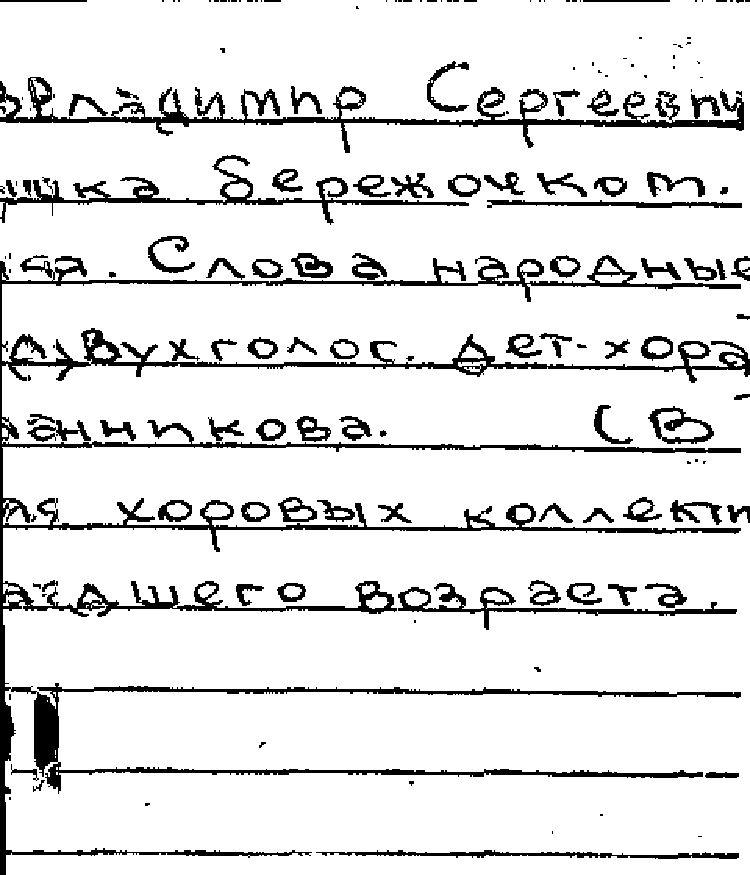 Владимир Сергеевич
шка бережочком.
ая. Слова народные
двухголос. дет. хора
анникова. (В
ля хоровых коллекти
адшего возраста.